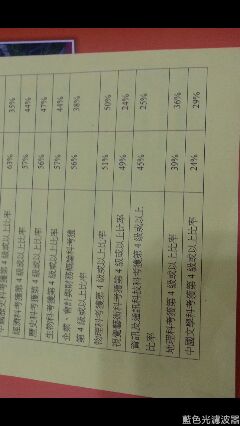 63% 35%
經濟科考獲第 4 級或以上比率 57% 44%
歷史科考獲第 4 級或以上比率 56% 47%
生物科考獲第 4 級或以上比率 57% 44%
企業、會計與財務概論科考獲 56% 38%
第 4 級或以上比率
物理科考獲第 4 級或以上比率 51% 50%
視覺藝術科考獲第 4 級或以上比率 49% 24%
資訊及通訊科技科考獲第 4 級或以上 45% 25%
比率
地理科考獲第 4 級或以上比率 39% 36%
中國文學科考獲第 4 級或以上比率 24% 29%
藍色光濾波器